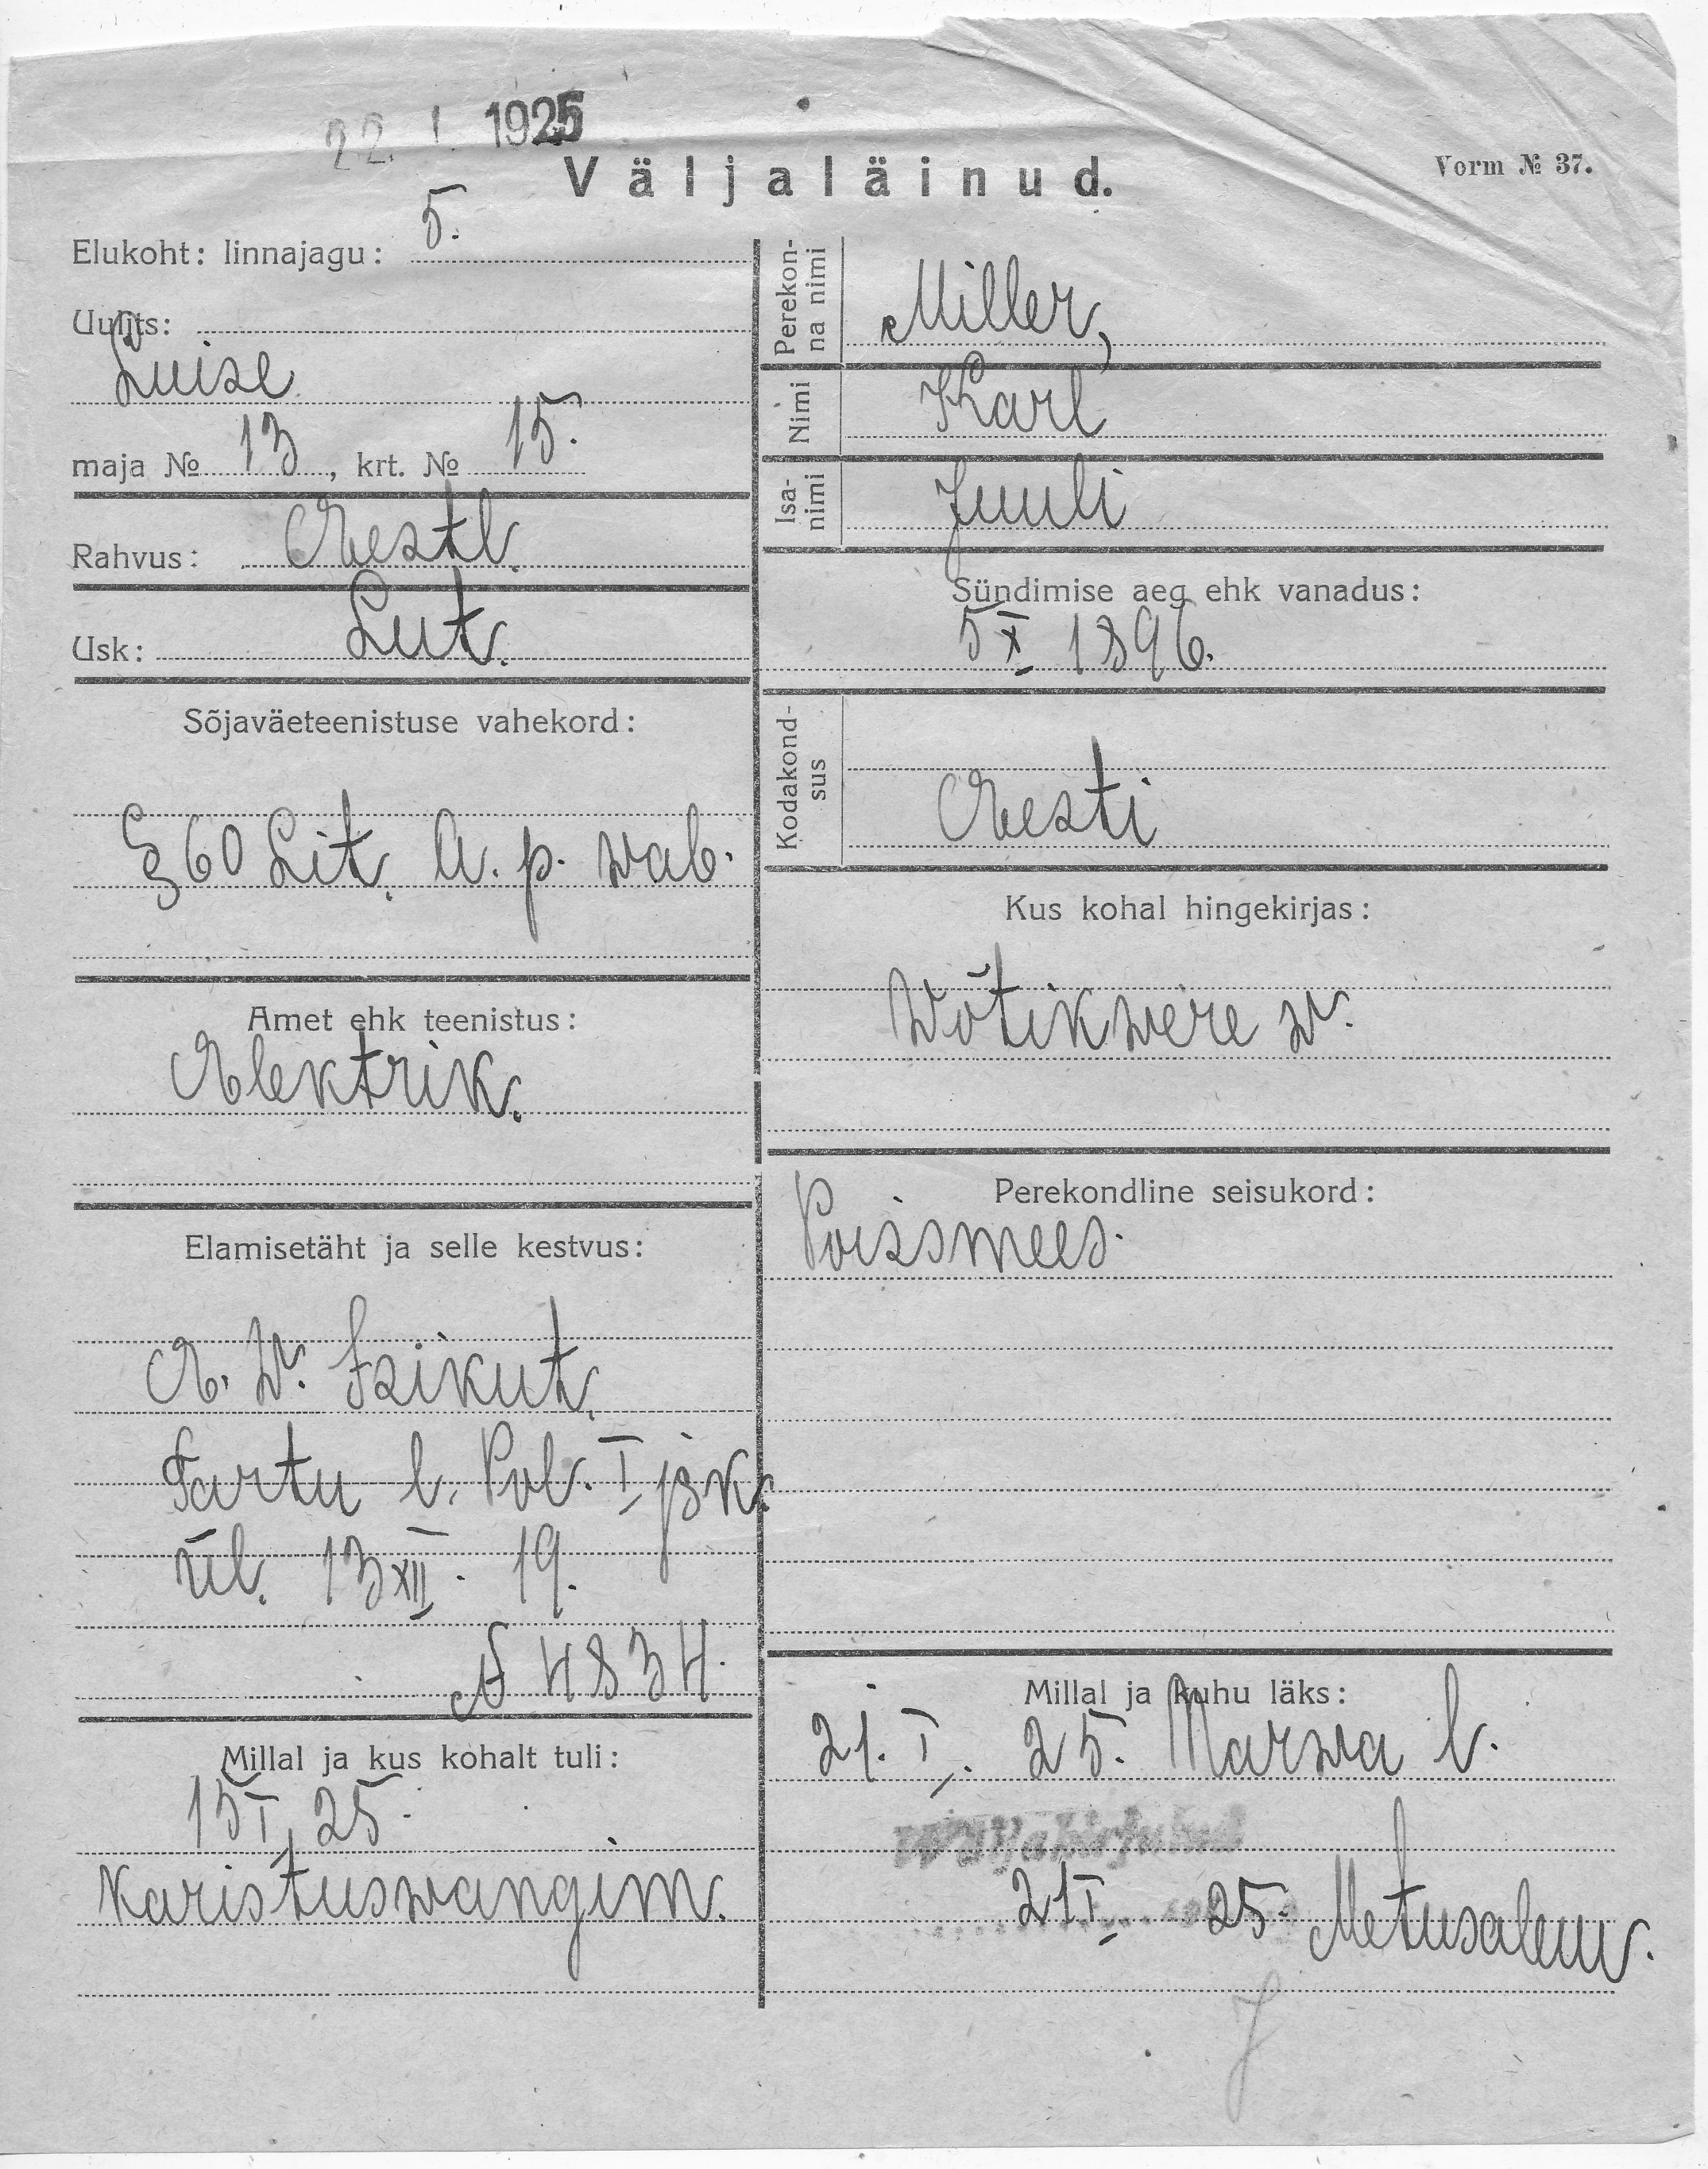 22. I 1925
Väljaläinud.
Vorm № 37.
Elukoht: linnajagu: 5.
Uulits:
Luise
maja № 13, krt. № 15.
Rahvus: Eestl.
Usk: Lut.
Sõjaväeteenistuse vahekord:
§ 60 Lit. A. p. wab.
Amet ehk teenistus:
Elektrik.
Elamisetäht ja selle kestvus:
E. W. Isikut.
Tartu l. Pol. I jsk.
ül. 13 XII. 19.
№ 4834.
Millal ja kus kohalt tuli:
15 I 25.
Karistuswangim.
Perekonna nimi
Miller,
Nimi
Karl
Isanimi
Juuli
Sündimise aeg ehk vanadus:
5 X 1896.
Kodakondsus
Eesti
Kus kohal hingekirjas:
Wõtikwere w.
Perekondline seisukord:
Poissmees.
Millal ja kuhu läks:
21. I. 25. Narwa l.
Wäljakirjutud
21 I 25. Metusalem.